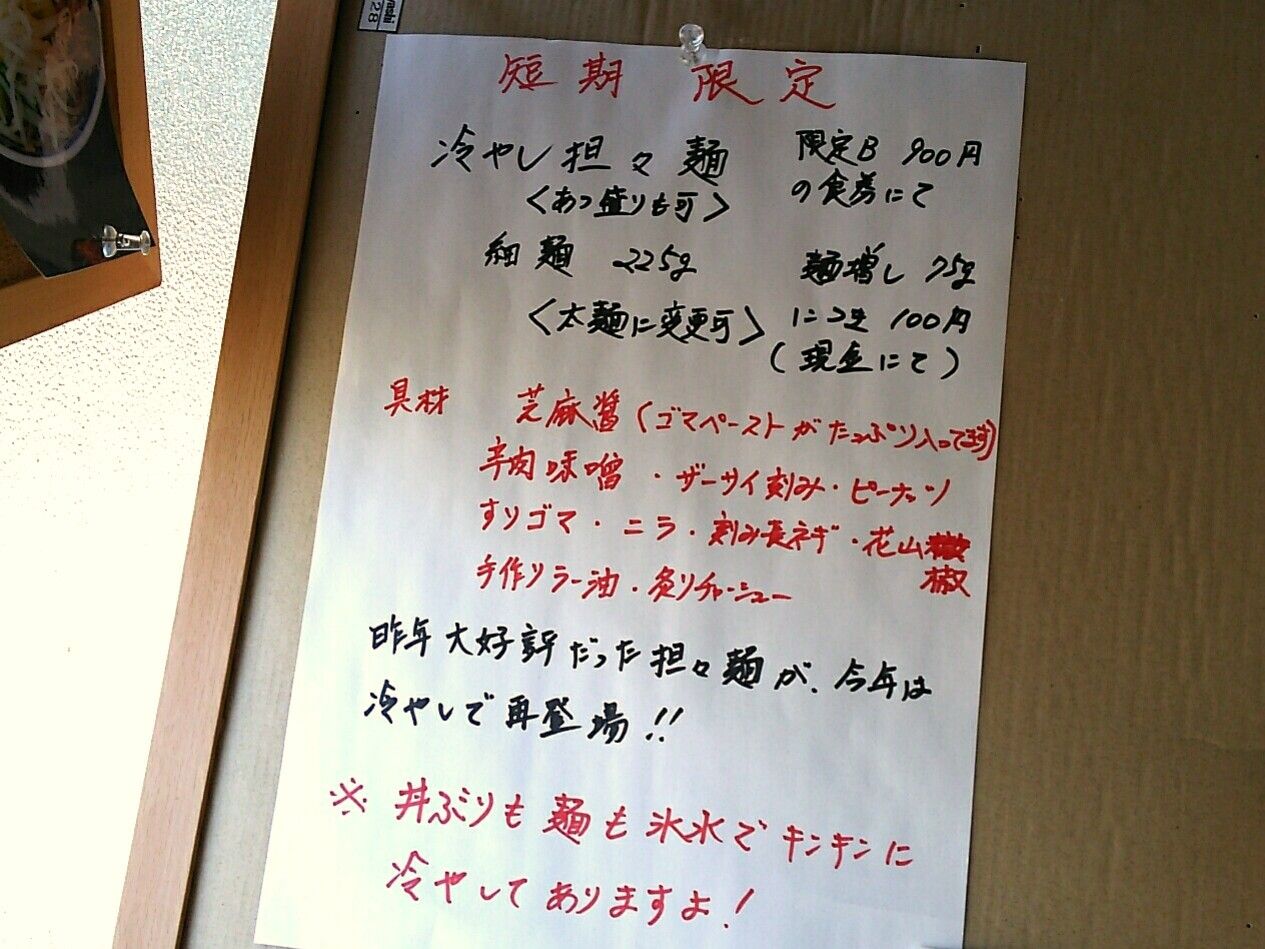 28
短期 限定
冷やし担々麺
<あつ盛りも可>
限定B 900円
の食券にて
細麺 225g
<太麺に変更可>
麺増し 75g
につき 100円
(現金にて)
具材 芝麻醤(ゴマペーストがたっぷり入ってます)
辛肉味噌・ザーサイ刻み・ピーナッツ
すりゴマ・ニラ・刻み長ネギ・花山椒
手作りラー油・炙りチャーシュー
昨年大好評だった担々麺が、今年は
冷やしで再登場!!
※丼ぶりも麺も氷水でキンキンに
冷やしてありますよ!